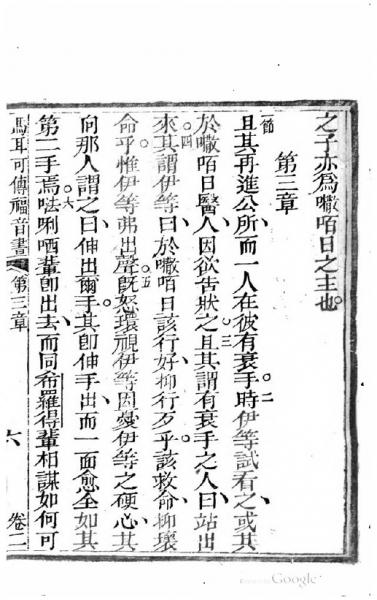 之子亦爲𡂡咟日之主也
第三章
一節 且其再進公所而一人在彼有衰手二時伊等試看之或其
於𡂡咟日醫人因欲告狀之三且其謂有衰手之人曰站出
來四其謂伊等曰於𡂡咟日該行好抑行歹乎該救命抑壞
命乎惟伊等弗出聲五旣怒環視伊等因憂伊等之硬心其
向那人謂之曰伸出爾手其卽伸手出而一面愈全如其
第二手焉六𠵽唎哂輩卽出去而同希羅得輩相謀如何可
馬耳可傳福音書 第三章 六 卷二
Google